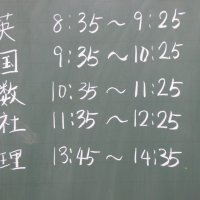 英 8:35～9:25
国 9:35～10:25
数 10:35～11:25
社 11:35～12:25
理 13:45～14:35